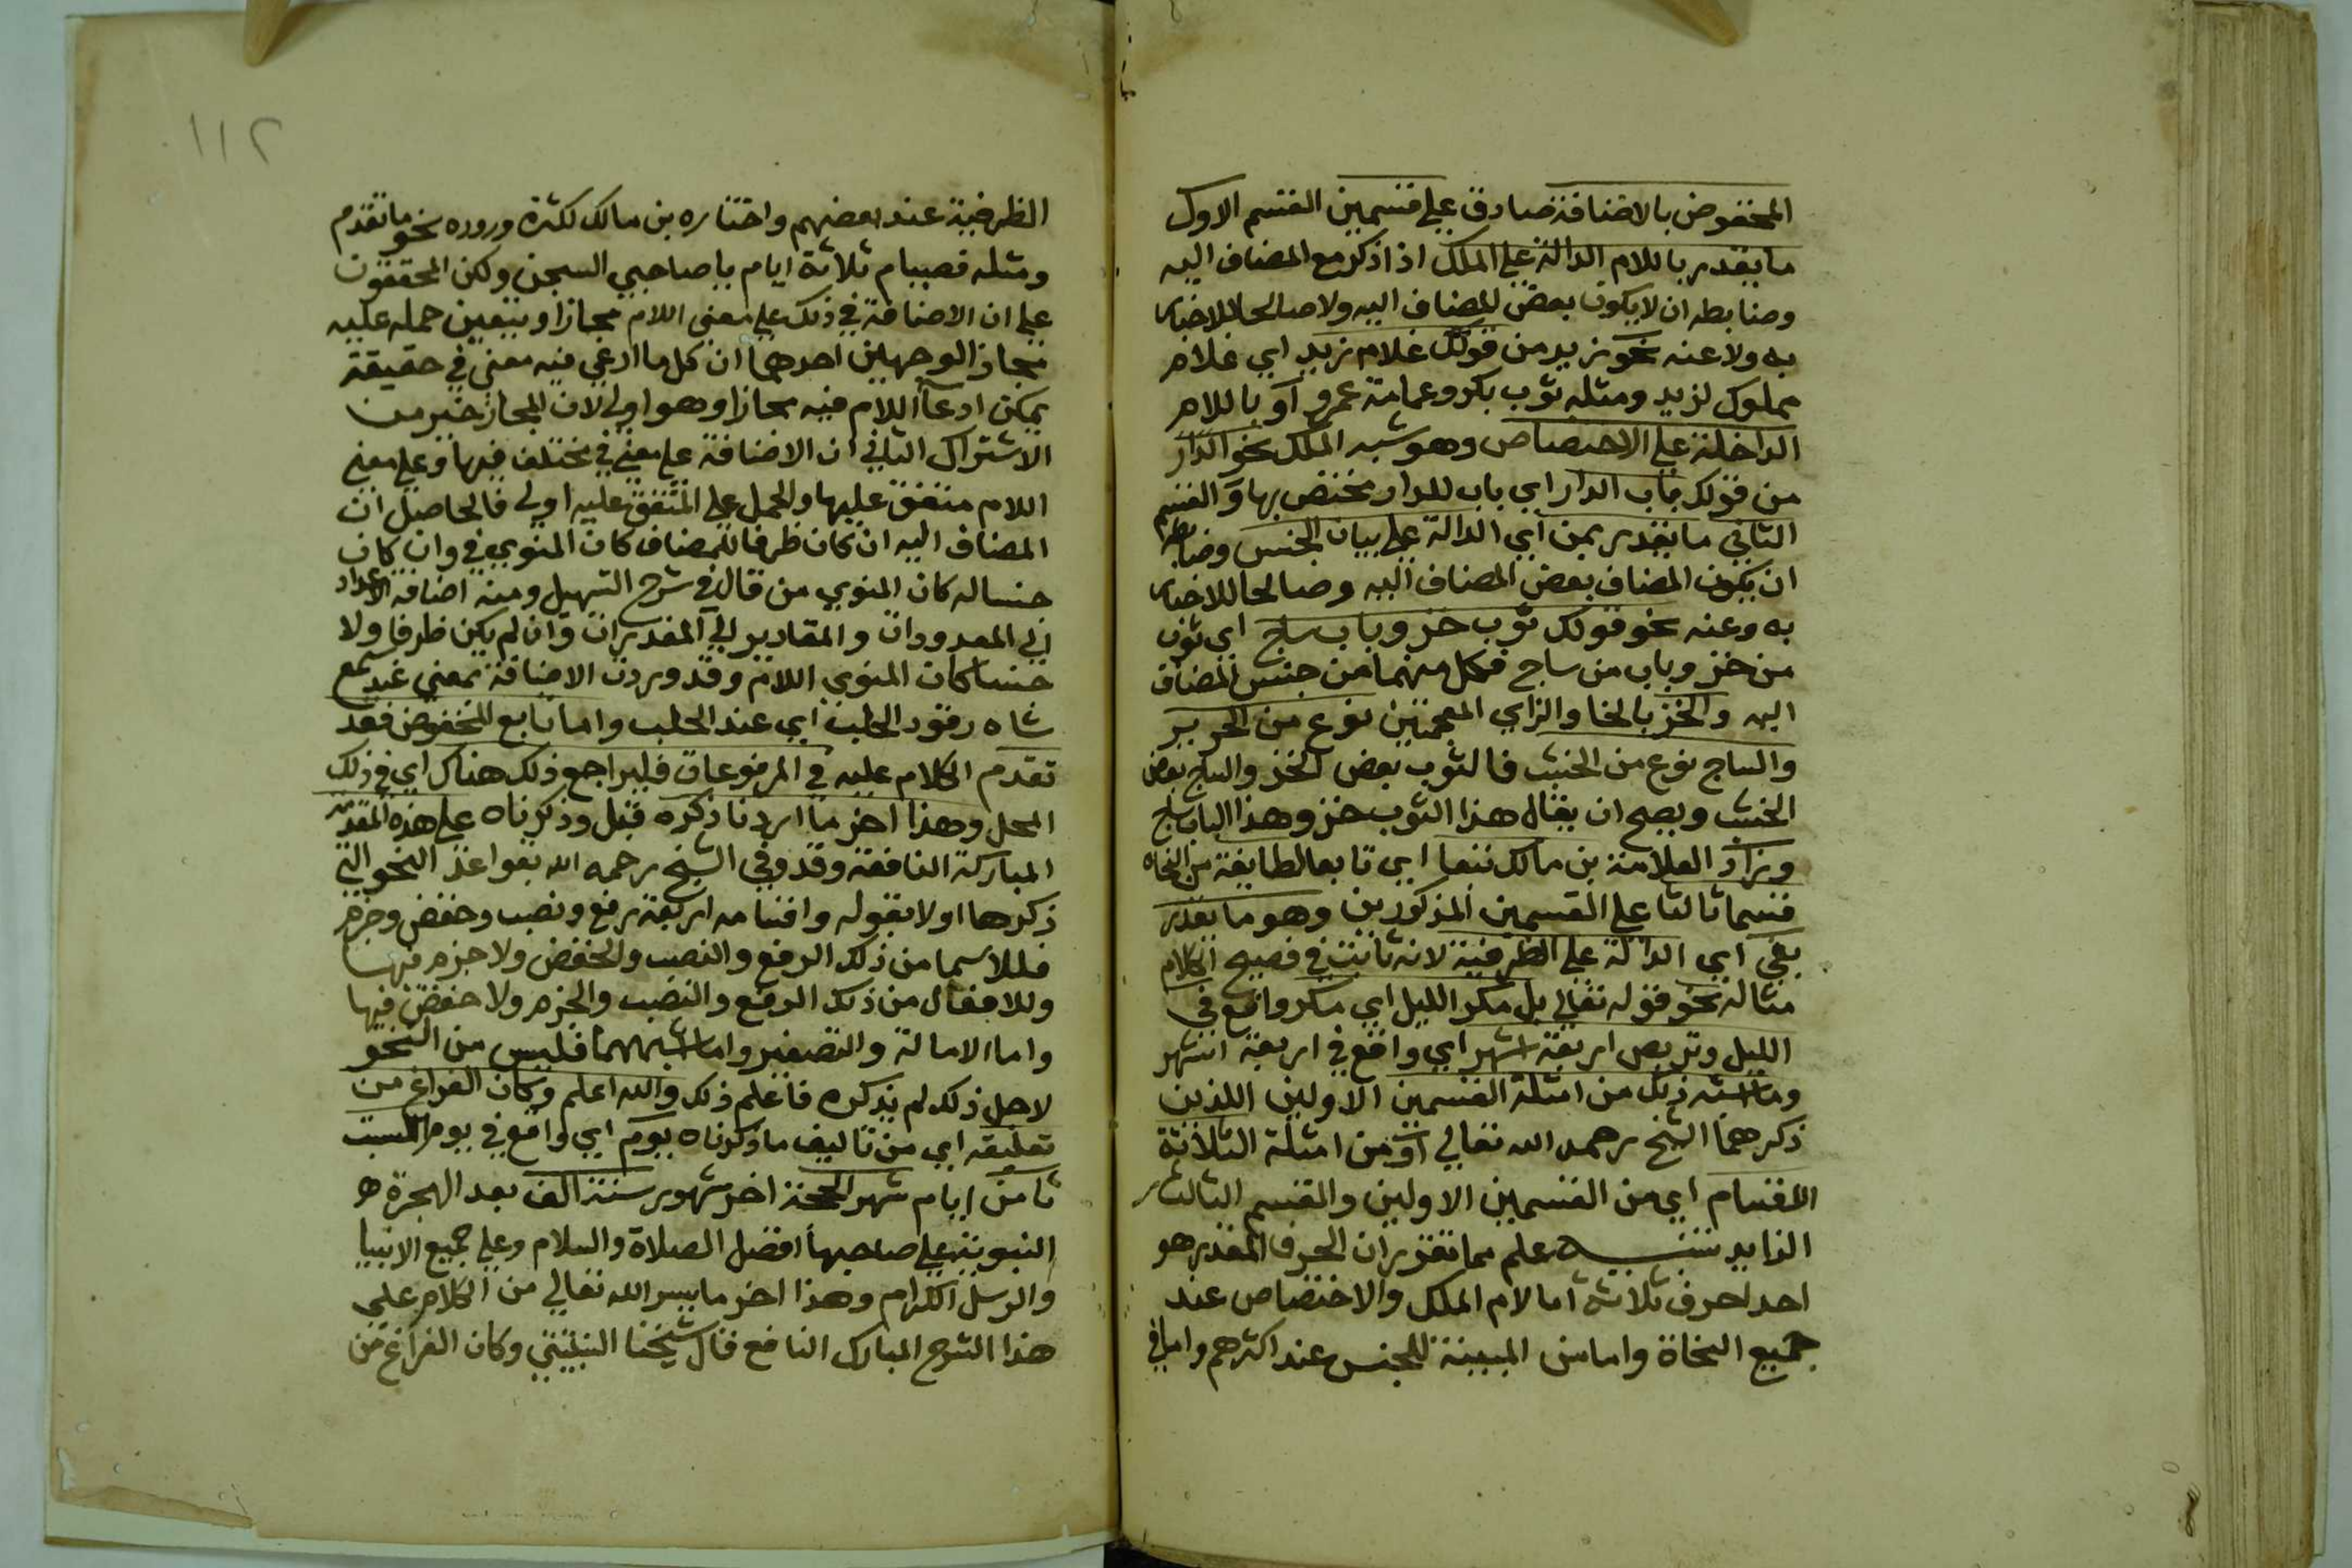 المخفوض بالاضافة صادق علي قسمين القسم الاول
ما يقدر باللام الدالة علي الملك اذا ذكر مع المضاف اليه
وضابطه ان لا يكون بعض المضاف اليه ولا صالحا للاخبار
به ولا عنه نحو زيد من قولك غلام زيد اي غلام
مملوك لزيد ومثله ثوب بكر وعمامة عمرو او باللام
الداخلة علي الاختصاص وهو شبه الملك نحو الدار
من قولك باب الدار اي باب للدار مختص بها و القسم
الثاني ما يقدر بمن اي الدالة علي بيان الجنس وضابطه
ان يكون المضاف بعض المضاف اليه وصالحا للاخبار
به وعنه نحو قولك ثوب خز وباب ساج اي ثوب
من خز وباب من ساج فكل منهما من جنس المضاف
اليه والخز بالخا والزاي المعجمتين نوع من الحرير
والساج نوع من الخشب فالثوب بعض الخز والباب بعض
الخشب ويصح ان يقال هذا الثوب خز وهذا الباب ساج
وزاد العلامة بن مالك تبعا اي تابعا لطايفة من النحاه
قسما ثالثا علي القسمين المذكورين وهو ما يقدر
بفي اي الدالة علي الظرفية لانه ثابت في فصيح الكلام
مثاله نحو قوله تعالي بل مكر الليل اي مكر واقع في
الليل وتربص اربعة اشهر اي واقع في اربعة اشهر
وما اشبه ذلك من امثلة القسمين الاولين اللذين
ذكرهما الشيخ رحمه الله تعالي او من امثلة الثلاثة
الاقسام اي من القسمين الاولين والقسم الثالث
الزايد تنبيه علم مما تقرر ان الحرف المقدر هو
احد احرف ثلاثة اما لام الملك والاختصاص عند
جميع النحاة واما من المبينة للجنس عند اكثرهم واما في
١١٢
الظرفية عند بعضهم واختاره بن مالك لكثرة وروده نحو ما تقدم
ومثله فصيام ثلاثة ايام يا صاحبي السجن ولكن المحققون
علي ان الاضافة في ذلك علي معني اللام مجازا ويتعين حمله عليه
مجازا لوجهين احدهما ان كل ما ادعي فيه معني في حقيقة
يمكن ادعآ اللام فيه مجازا وهو اولي لان المجاز خير من
الاشتراك الثاني ان الاضافة علي معني في مختلف فيها وعلي معني
اللام متفق عليها والحمل علي المتفق عليه اولي فالحاصل ان
المضاف اليه ان كان ظرفا للمضاف كان المنوي في وان كان
جنسا له كان المنوي من قال في شرح التسهيل ومنه اضافة الاعداد
الي المعدودات والمقادير الي المقدرات وان لم يكن ظرفا ولا
جنسا كان المنوي اللام وقد وردت الاضافة بمعني عند سمع
شاه رقود الحلب اي عند الحلب واما تابع المخفوض فقد
تقدم الكلام عليه في المرفوعات فليراجع ذلك هناك اي في ذلك
المحل وهذا اخر ما اردنا ذكره قبل وذكرناه علي هذه المقدمة
المباركة النافعة وقد وفي الشيخ رحمه الله بقواعد النحو التي
ذكرها اولا بقوله واقسامه اربعة رفع ونصب وخفض وجزم
فللاسما من ذلك الرفع والنصب والخفض ولا جزم فيها
وللافعال من ذلك الرفع والنصب والجزم ولا خفض فيها
واما الامالة والتصغير وما اشبههما فليس من النحو
لاجل ذلك لم يذكره فاعلم ذلك والله اعلم وكان الفراغ من
تعليقه اي من تاليف ما ذكرناه يوم اي واقع في يوم السبت
ثامن ايام شهر الحجة اخر شهور سنة الف بعد الهجرة
النبوية علي صاحبها افضل الصلاة والسلام وعلي جميع الانبيا
والرسل الكرام وهذا اخر ما يسر الله تعالي من الكلام علي
هذا الشرح المبارك النافع قال شيخنا النبتيتي وكان الفراغ من